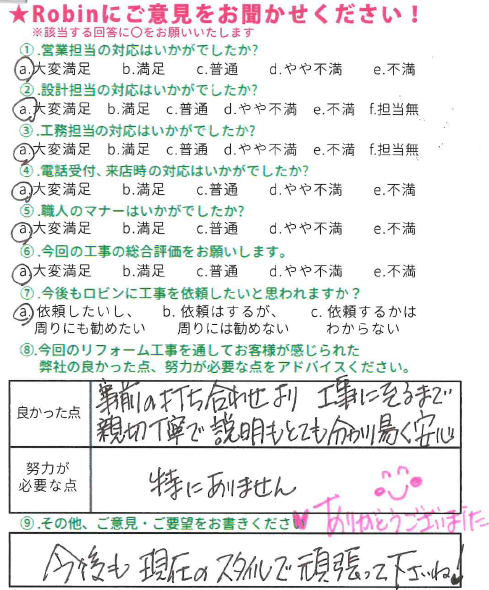 ★Robinにご意見をお聞かせください！
※該当する回答に〇をお願いいたします
①.営業担当の対応はいかがでしたか?
a.大変満足 b.満足 c.普通 d.やや不満 e.不満
②.設計担当の対応はいかがでしたか?
a.大変満足 b.満足 c.普通 d.やや不満 e.不満 f.担当無
③.工務担当の対応はいかがでしたか?
a.大変満足 b.満足 c.普通 d.やや不満 e.不満 f.担当無
④.電話受付、来店時の対応はいかがでしたか?
a.大変満足 b.満足 c.普通 d.やや不満 e.不満
⑤.職人のマナーはいかがでしたか?
a.大変満足 b.満足 c.普通 d.やや不満 e.不満
⑥.今回の工事の総合評価をお願いします。
a.大変満足 b.満足 c.普通 d.やや不満 e.不満
⑦.今後もロビンに工事を依頼したいと思われますか？
a.依頼したいし、 b. 依頼はするが、 c. 依頼するかは
周りにも勧めたい 周りには勧めない わからない
⑧.今回のリフォーム工事を通してお客様が感じられた
弊社の良かった点、努力が必要な点をアドバイスください。
良かった点
事前の打ち合わせより 工事に至るまで
親切丁寧で説明もとても分かり易く安心
努力が
必要な点
特にありません
⑨.その他、ご意見・ご要望をお書きください
ありがとうございました
今後も現在のスタイルで頑張って下さいね！